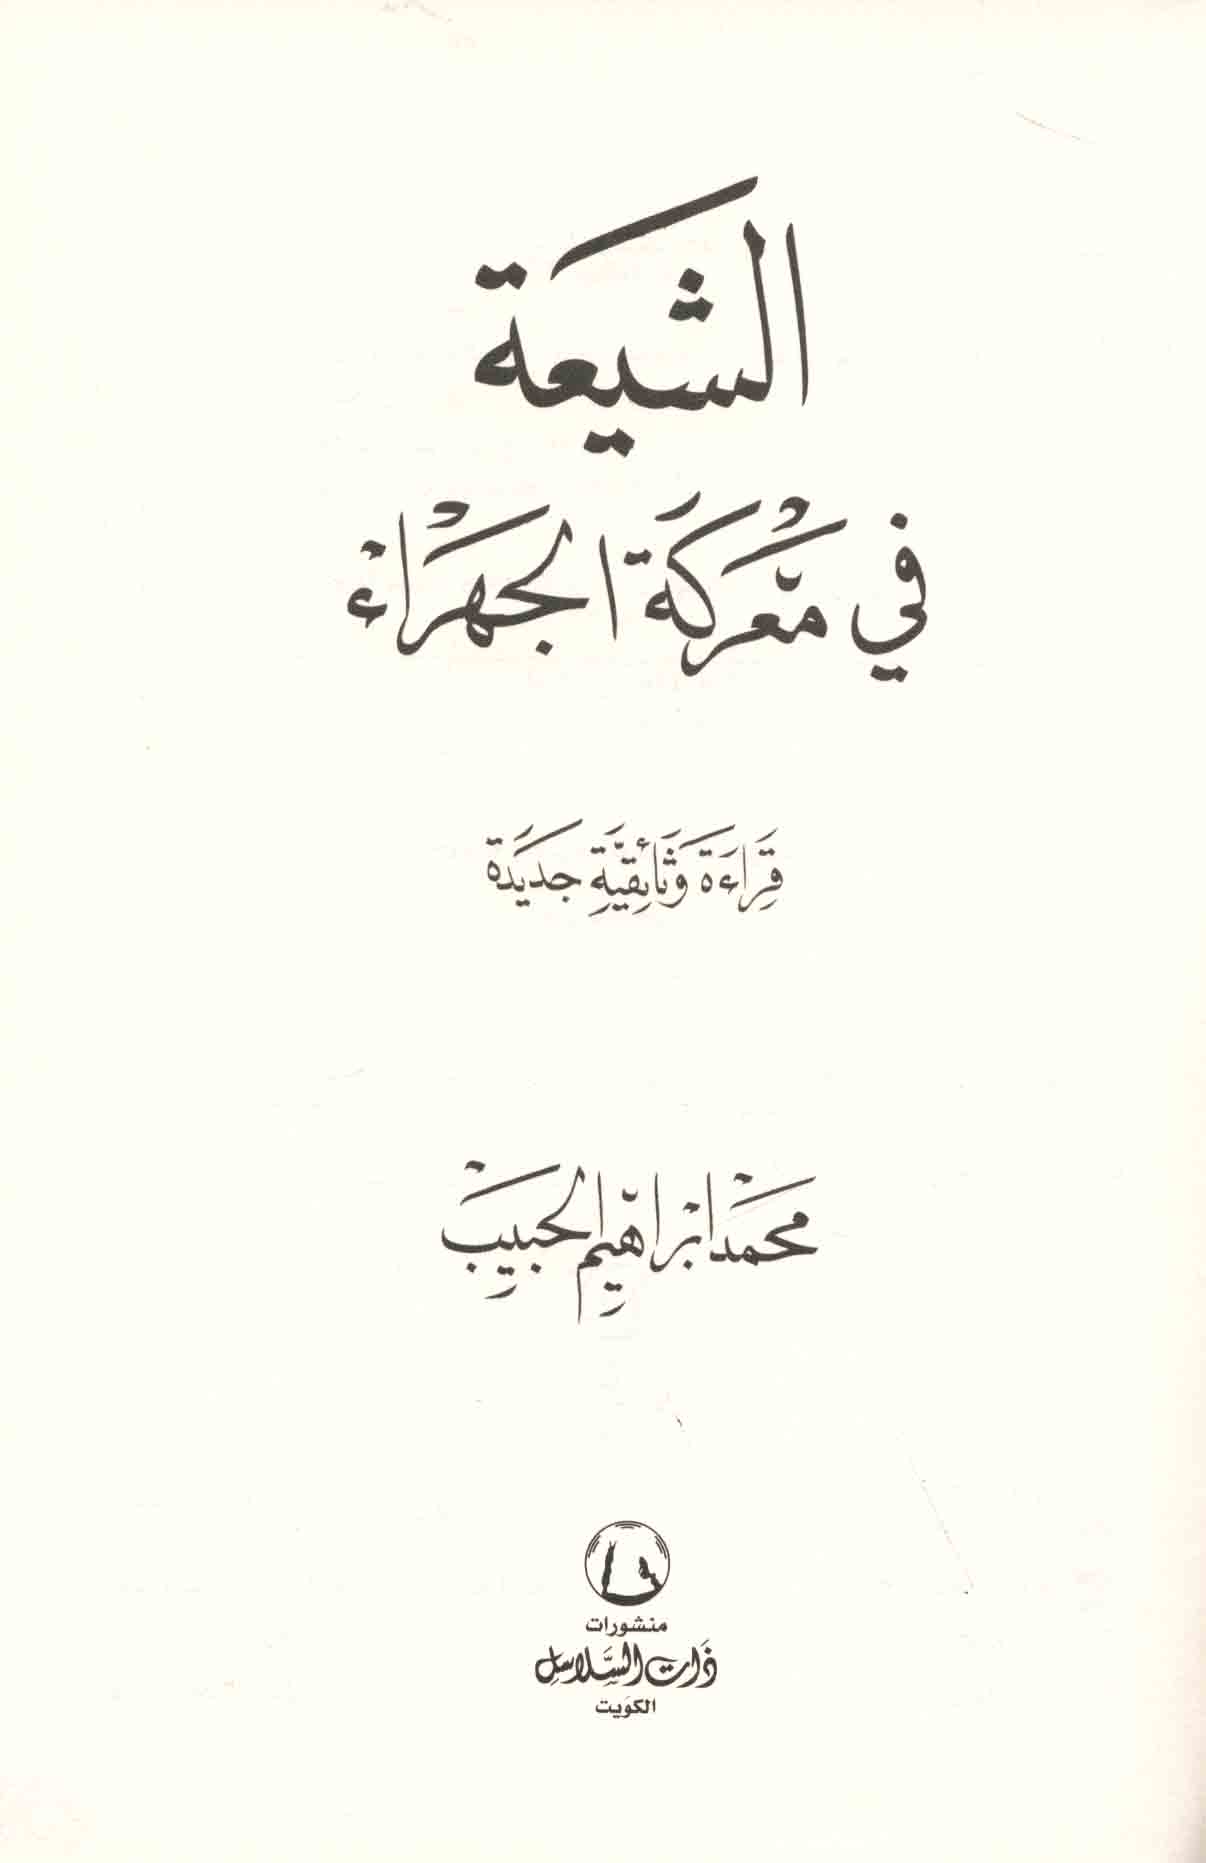 الشيعة
في معركة الجهراء
قراءة وثائقية جديدة
محمد ابراهيم الحبيب
منشورات
ذات السلاسل
الكويت